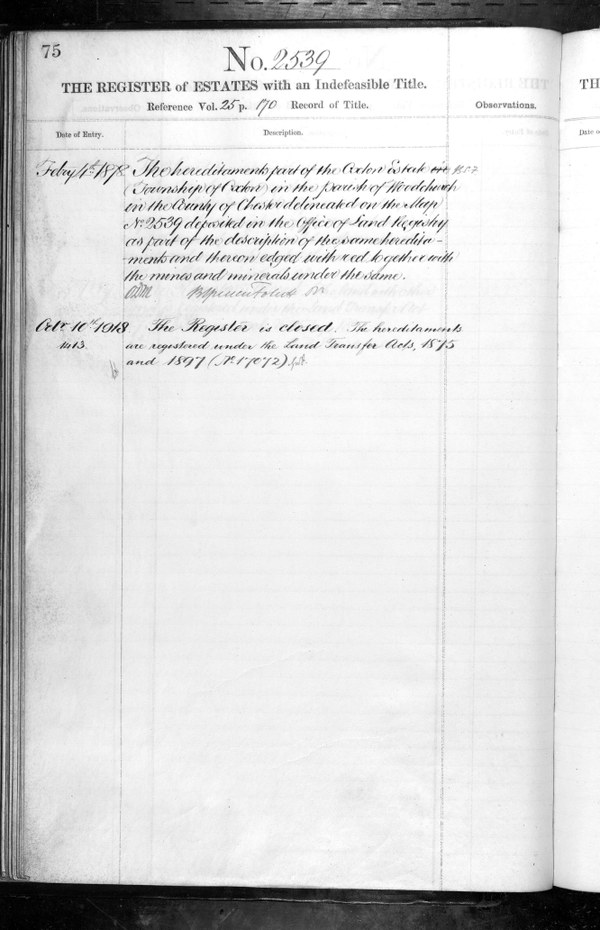 75
No. 2539
THE REGISTER of ESTATES with an Indefeasible Title.
Reference Vol. 25 p. 170 Record of Title.
Observations.
Date of Entry.
Description.
Febry 4th 1878 The hereditaments part of the Oxton Estate
(Township of Oxton) in the parish of Woodchurch
in the County of Chester delineated on the Map
No 2539 deposited in the Office of Land Registry
as part of the description of the same heredita-
-ments and thereon edged with red together with
the mines and minerals under the same.
Octr 10th 1913 The Register is closed. The hereditaments
1413. are registered under the Land Transfer Acts, 1875
and 1897 (No 17072)
TH
Date o